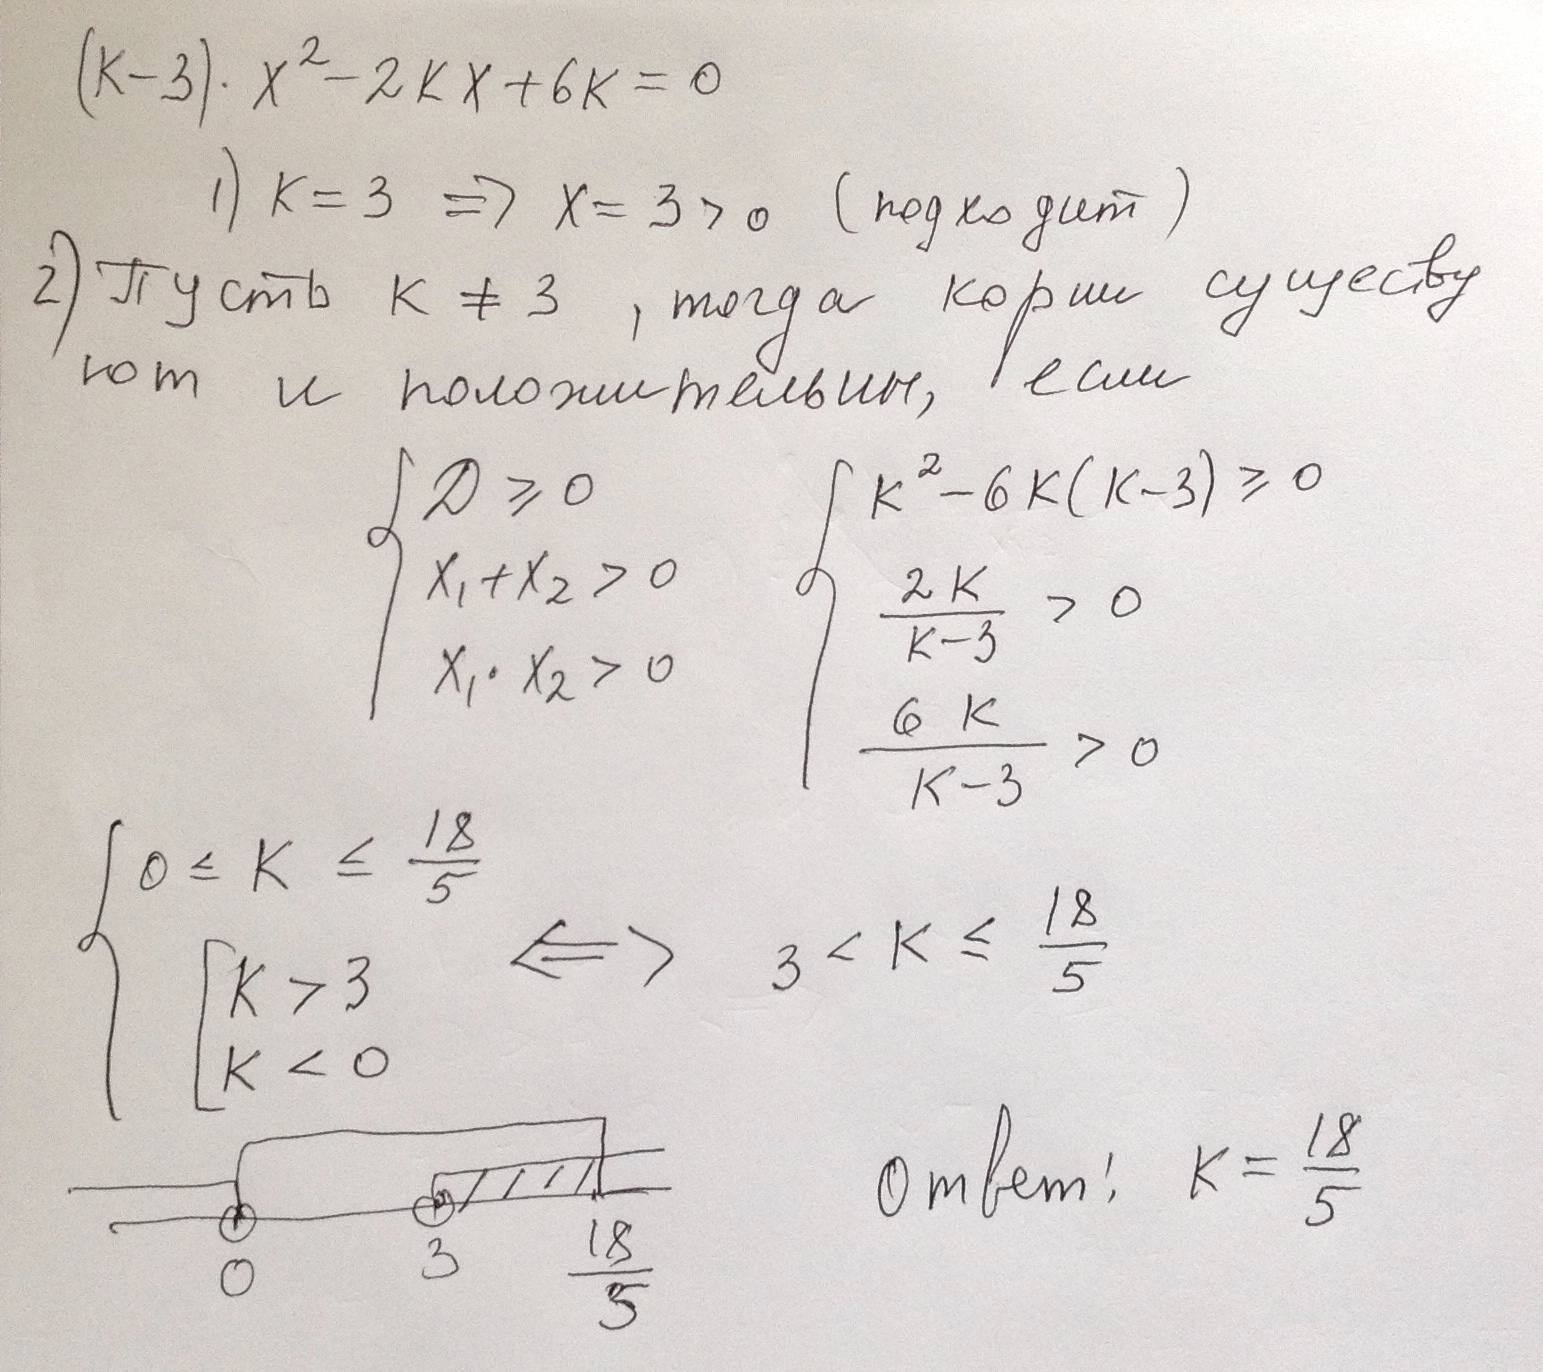 (K-3)·x²-2Kx+6K=0
1) K=3 => x=3>0 (подходит)
2) Пусть K≠3, тогда корни существу
ют и положительны, если
{ D ≥ 0
x₁+x₂ > 0
x₁·x₂ > 0
{ K²-6K(K-3) ≥ 0
2K/(K-3) > 0
6K/(K-3) > 0
{ 0 ≤ K ≤ 18/5
[ K > 3
K < 0
<=> 3 < K ≤ 18/5
0 3 18/5
Ответ: K = 18/5